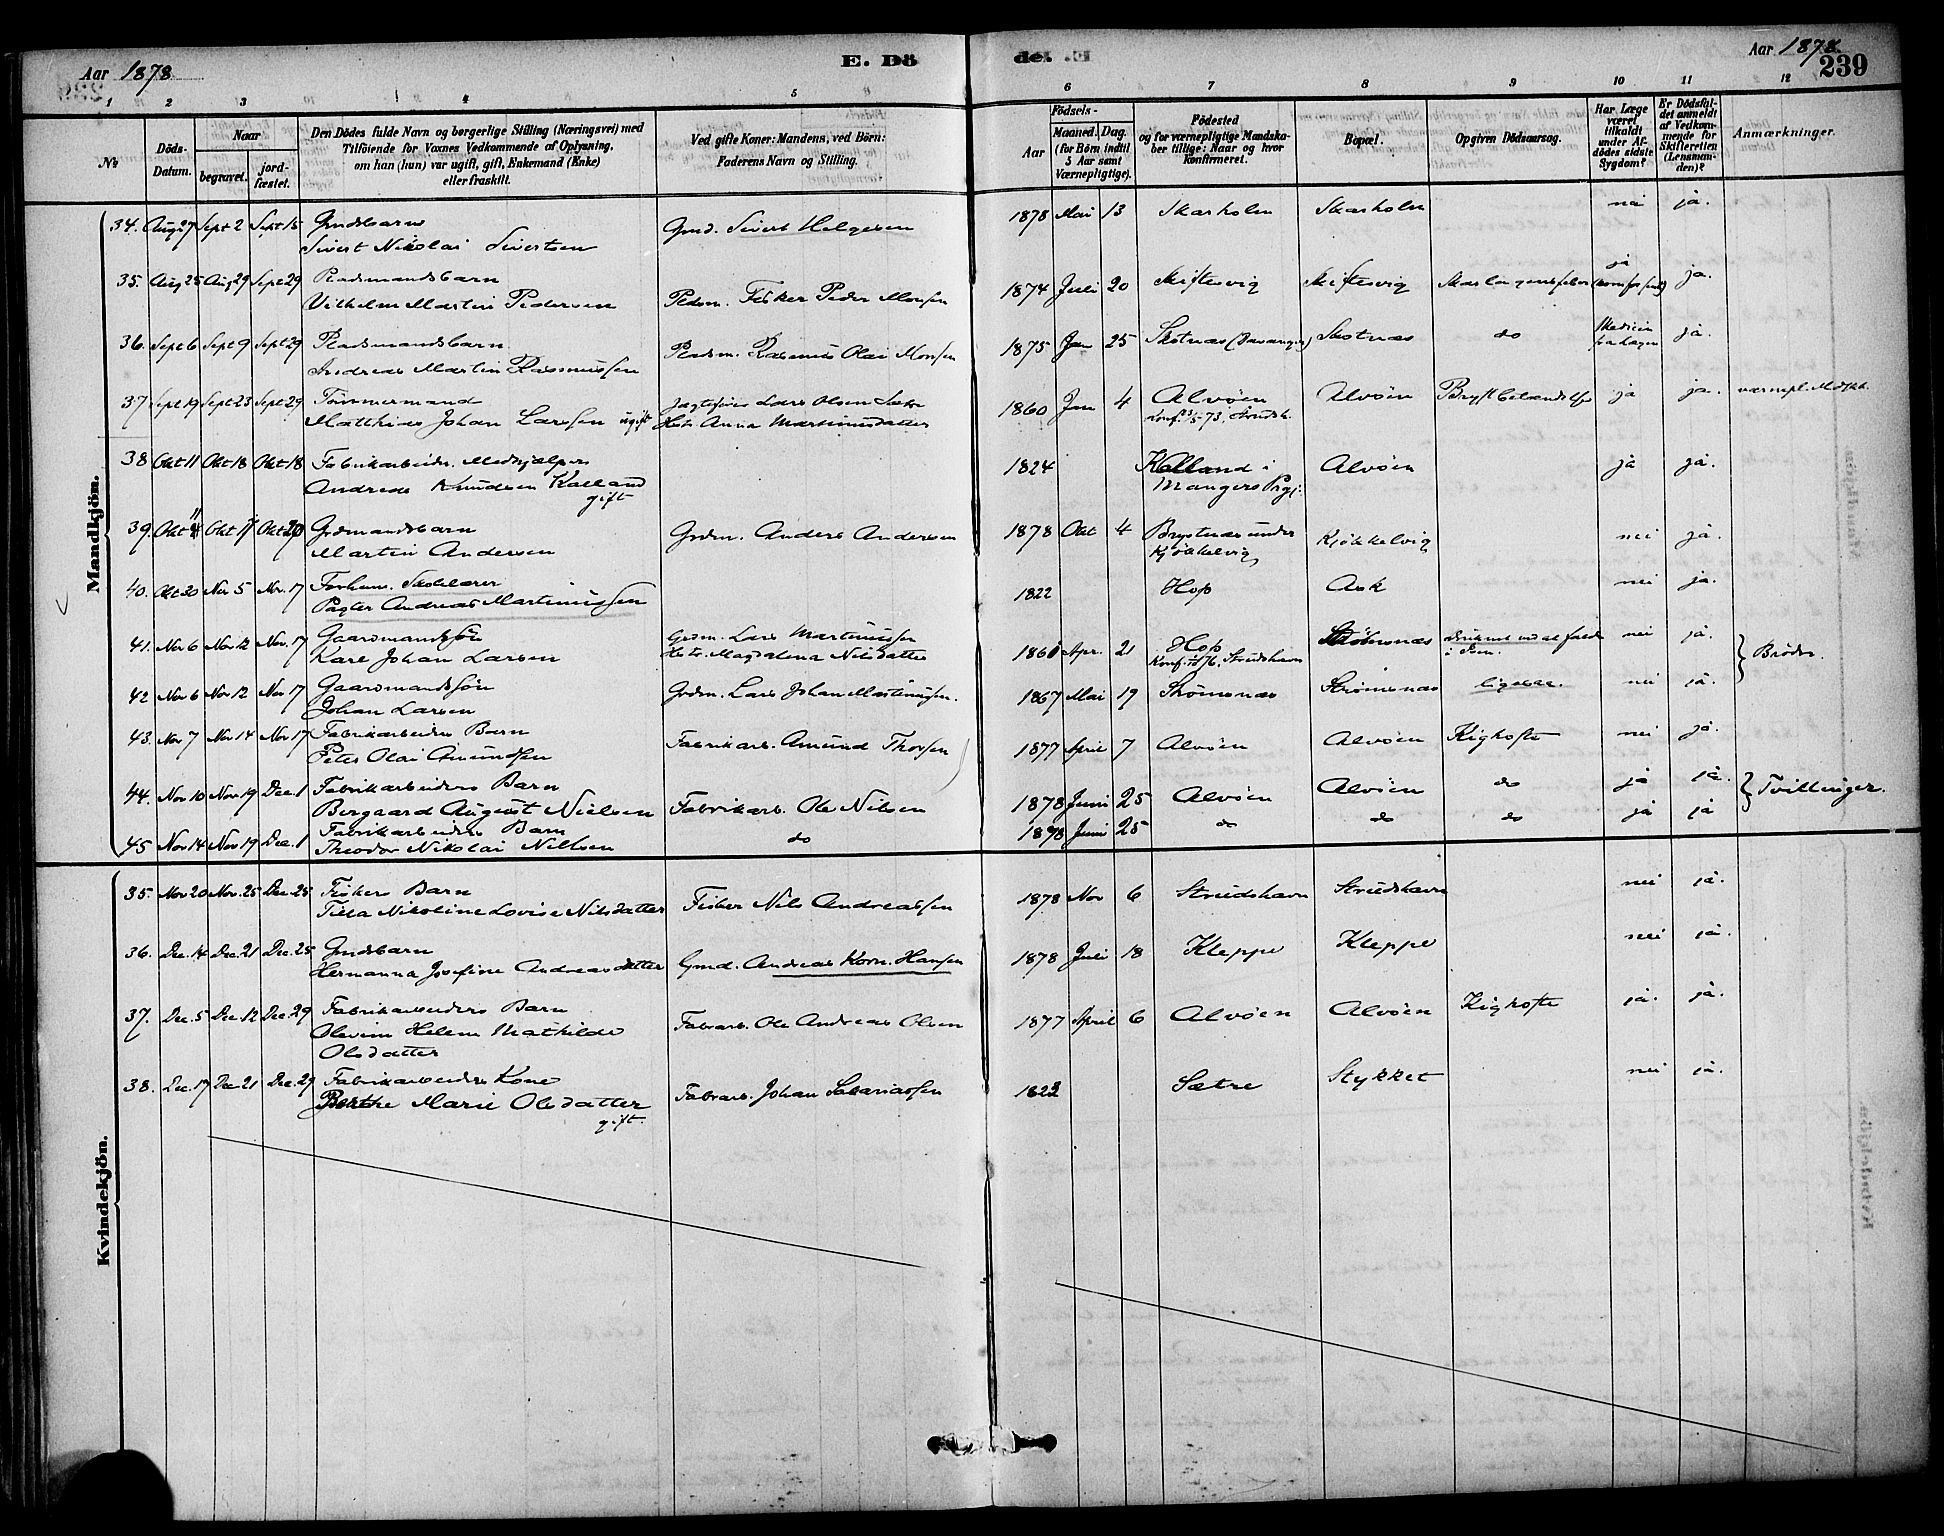 Aar 1878
E. Dö
de. E.
Aar 1878.
239
1 2 3 4 5 6 7 8 9 10 11 12
№
Döds-Datum.
Naar
begravet.
jord-fæstet.
Den Dödes fulde Navn og borgerlige Stilling (Næringsvei) med
Tilföiende for Voxnes Vedkommende af Oplysning,
om han (hun) var ugift, gift, Enkemand (Enke)
eller fraskilt.
Ved gifte Koner: Mandens, ved Börn:
Faderens Navn og Stilling.
Födsels-
Aar
Maaned. Dag.
(for Börn indtil
5 Aar samt
Værnepligtige).
Födested
og for værnepligtige Mandska-
ber tillige: Naar og hvor
konfirmeret.
Bopæl.
Opgiven Dödsaarsag.
Har Læge
været
tilkaldt
under Af-
dödes sidste
Sygdom?
Er Dödsfal-
det anmeldt
af Vedkom-
mende for
Skifteretten
(Lensman-
den)?
Anmærkninger.
Mandkjön.
34. Aug 27 Sept 2 Sept 15 Gmdsbarn Gmd. Sivert Helgesen 1878 Mai 13 Skarholm Skarholm nei ja.
Sivert Nikolai Sivertsen
35. Aug 25 Aug 29 Sept 29 Pladsmandsbarn Pladsm. Fisker Peder Monsen 1874 Juli 20 Skiftesvig Skiftesvig Skarlagensfeber ja (kom for sent) ja.
Vilhelm Martin Pedersen
36. Sept 6 Sept 9 Sept 29 Pladsmandsbarn Pladsm. Rasmus Olai Monsen 1875 Jan 25 Skotnæs (Davanger) Skotnæs do Medicin fra Lægen ja.
Andreas Martin Rasmussen
37 Sept 19 Sept 23 Sept 29 Tømmermand Jægtefører Lars Olsen 1860 Jan 4 Alvøen Alvøen Brystbetændelse ja ja. værnepl. Mdskb.
Matthias Johan Larsen ugift Hstr. Anna Martinusdatter 73, Strudsh.
38 Okt 11 Okt 18 Okt 18 Fabrikarbeider. Medhjælper 1824 Kalland i Alvøen ja ja.
Andreas Knudsen Kalland Mangers Prgj.
gift
39. Okt 11 Okt 17 Okt 20 Grdmandsbarn Grdm. Anders Andersen 1878 Okt 4 Brystnæs under Kjøkkelvig nei ja.
Martin Andersen Kjøkkelvig
40. Okt 30 Nov 5 Nov. 17 Forhen. Skolelærer 1822 Hop Ask nei ja.
Peder Andreas Martinussen
41. Nov 6 Nov 12 Nov. 17 Gaardmandssøn Grdm. Lars Martinussen 1861 Apr. 21 Hop Strømsnæs druknet ved at falde nei ja. } Brødre.
Karl Johan Larsen Hstr. Magdalena Nilsdatter Konf. 1876, Strudshavn i Søen.
42 Nov 6 Nov 12 Nov 17 Gaardmandssøn Grdm. Lars Johan Martinussen. 1867 Mai 19 Strømsnæs Strømsnæs ligesaa. nei ja.
Johan Larsen
43. Nov 7 Nov 14 Nov 17 Fabrikarbeiders Barn Fabrikarb. Amund Thorsen 1877 April 7 Alvøen Alvøen Kighoste nei ja.
Peter Olai Amundsen
44. Nov 10 Nov 19 Dec. 1 Fabrikarbeiders Barn Fabrikarb. Ole Nilsen 1878 Juni 25 Alvøen Alvøen do ja ja. } Tvillinger.
Bergaard August Nielsen
45 Nov 14 Nov 19 Dec. 1 Fabrikarbeiders Barn do 1878 Juni 25 do do do ja ja
Theodor Nikolai Nilssen
Kvindekjön.
35. Nov 20 Nov. 25 Dec. 25 Fiskers Barn Fisker Nils Andreassen 1878 Nov 6 Strudshavn Strudshavn nei ja.
Tilla Nikoline Lovise Nilsdatter
36. Dec. 14 Dec. 21 Dec. 25 Gmdsbarn Gmd. Andreas Korn. Hansen 1878 Juli 18 Kleppe Kleppe nei ja.
Hermanna Josefine Andreasdatter
37. Dec. 5 Dec. 12 Dec. 29 Fabrikarbeiders Barn Fabrarb. Ole Andreas Olsen 1877 April 6 Alvøen Alvøen Kighoste ja. ja.
Olevine Helene Mathilde
Olsdatter
38. Dec. 17 Dec 21 Dec. 29 Fabrikarbeiders Kone Fabrarb. Johan Sakariassen 1822 Sætre Stykket nei ja.
Berthe Marie Olsdatter
gift.